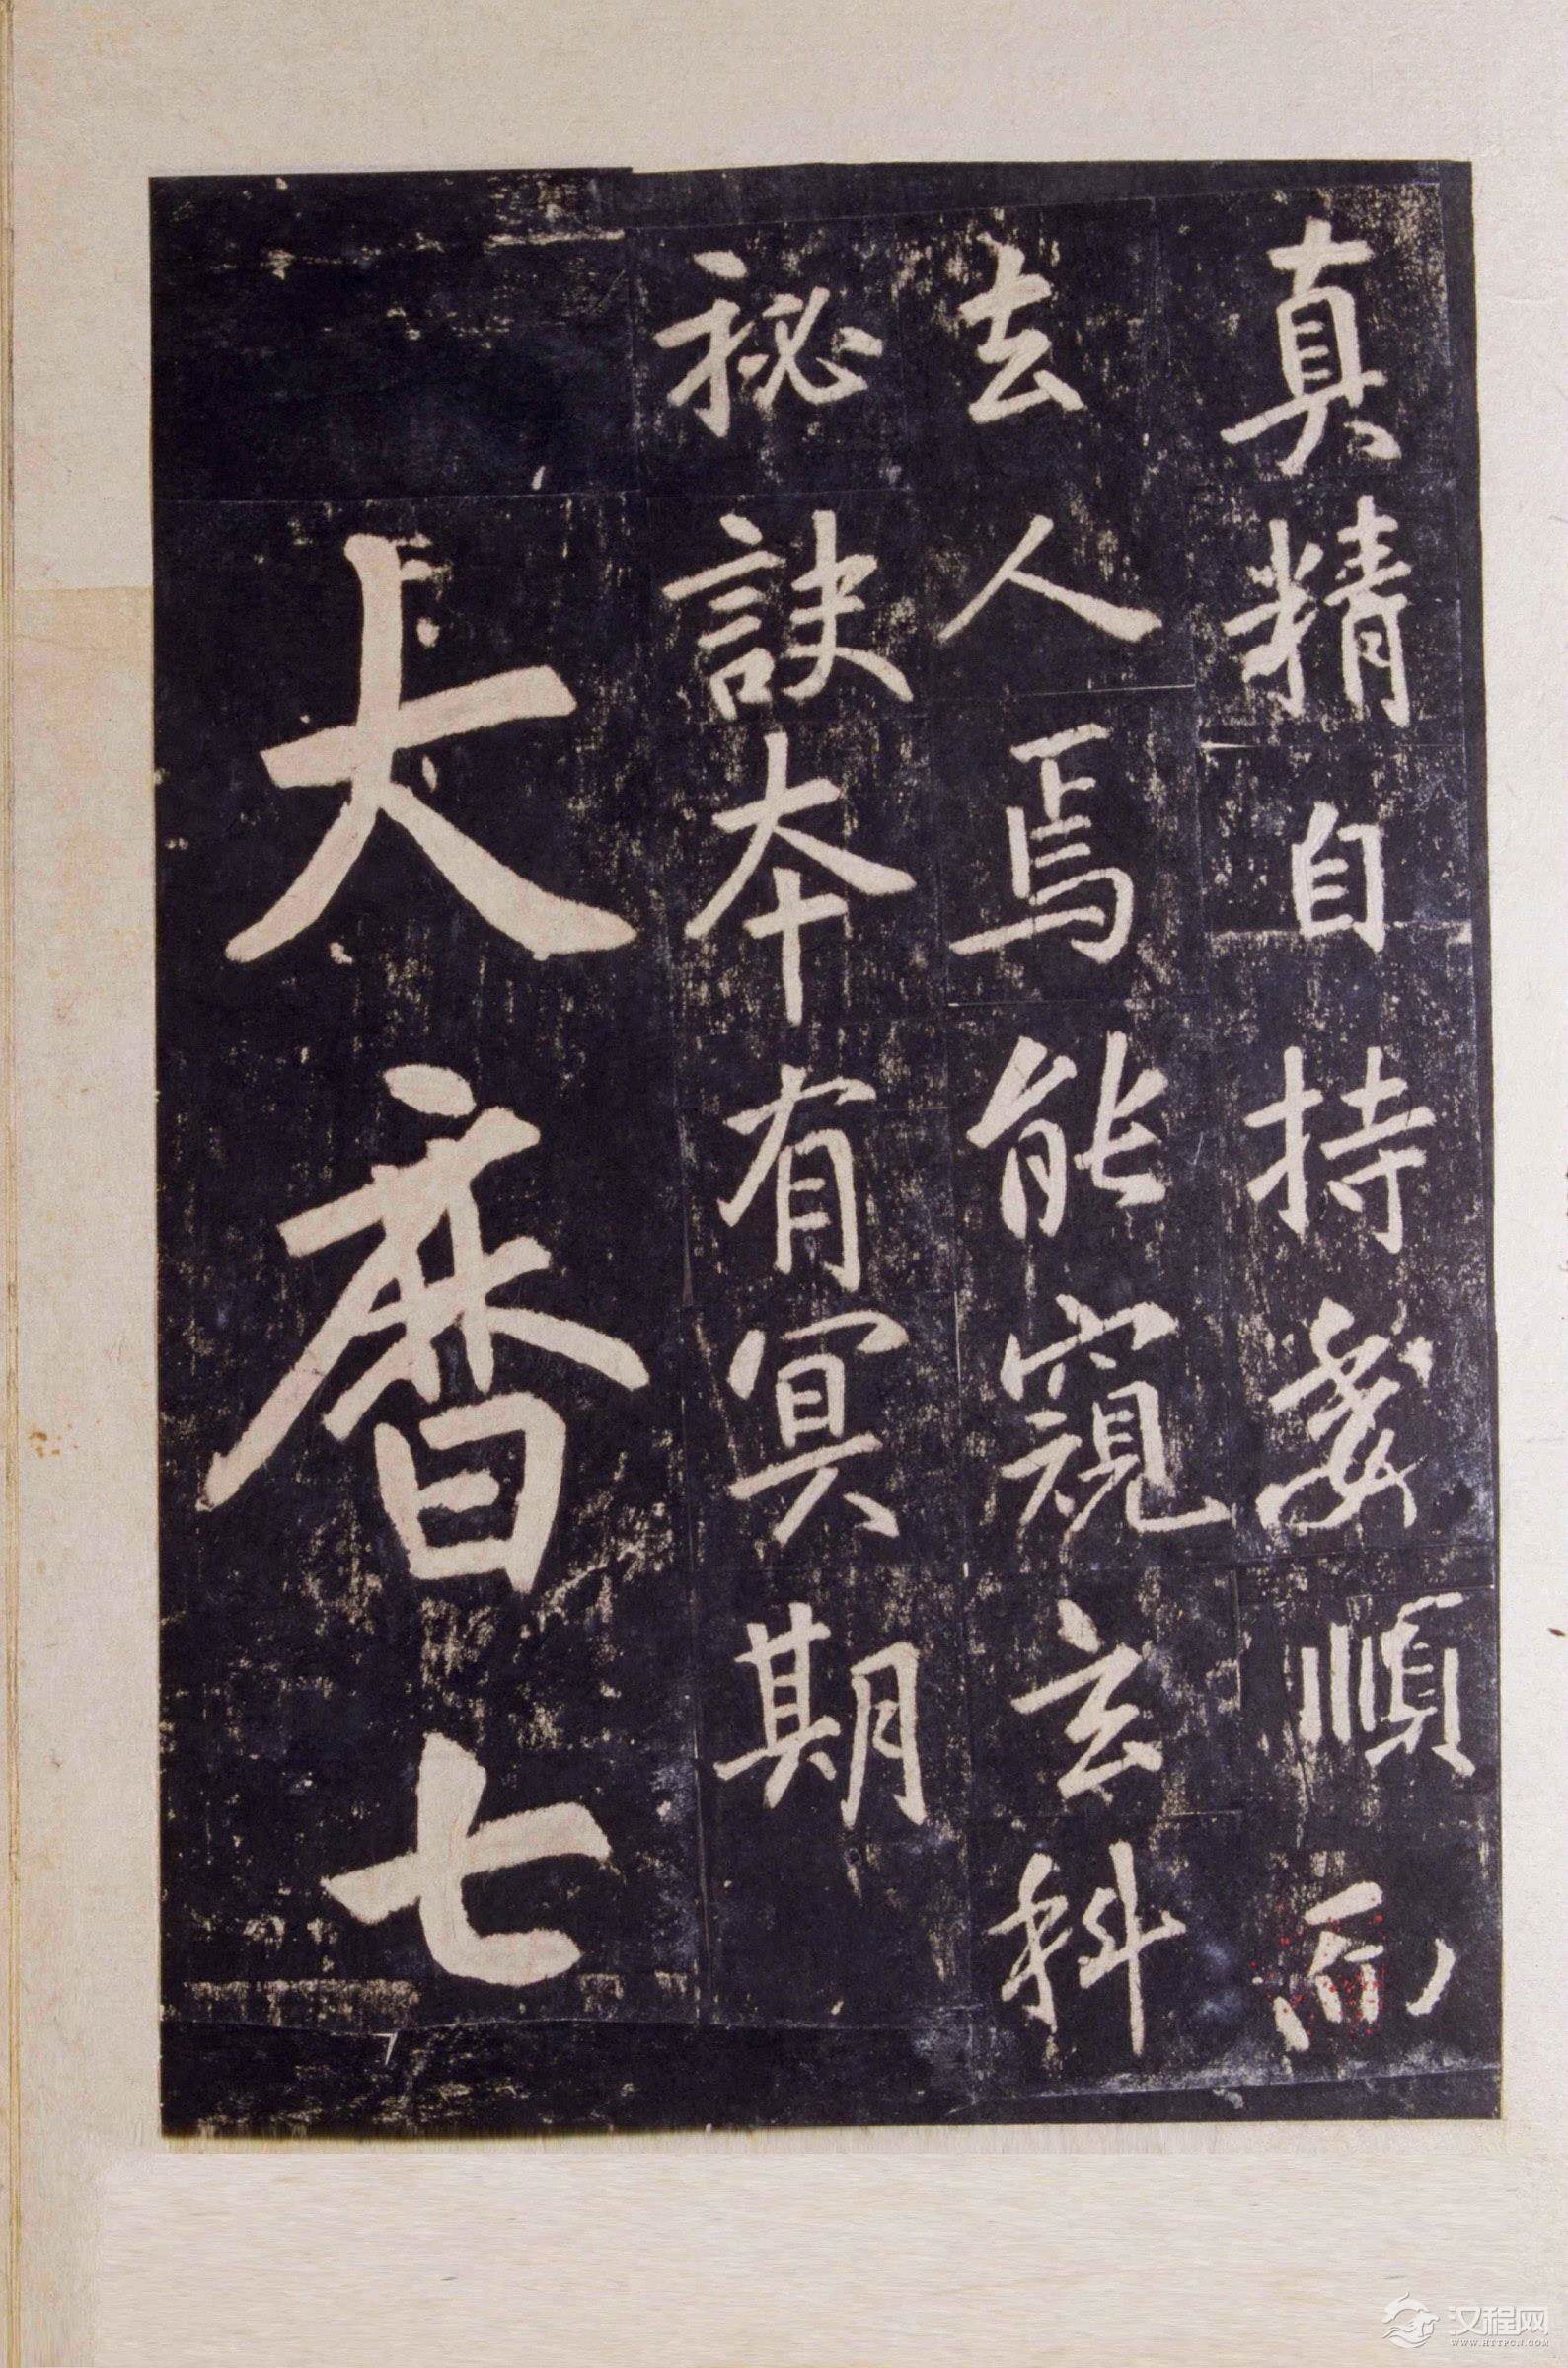 真精自持妄順
去人焉能窺玄科
祕訣本有冥期
大曆七
汉程网
WWW.HTTPCN.COM